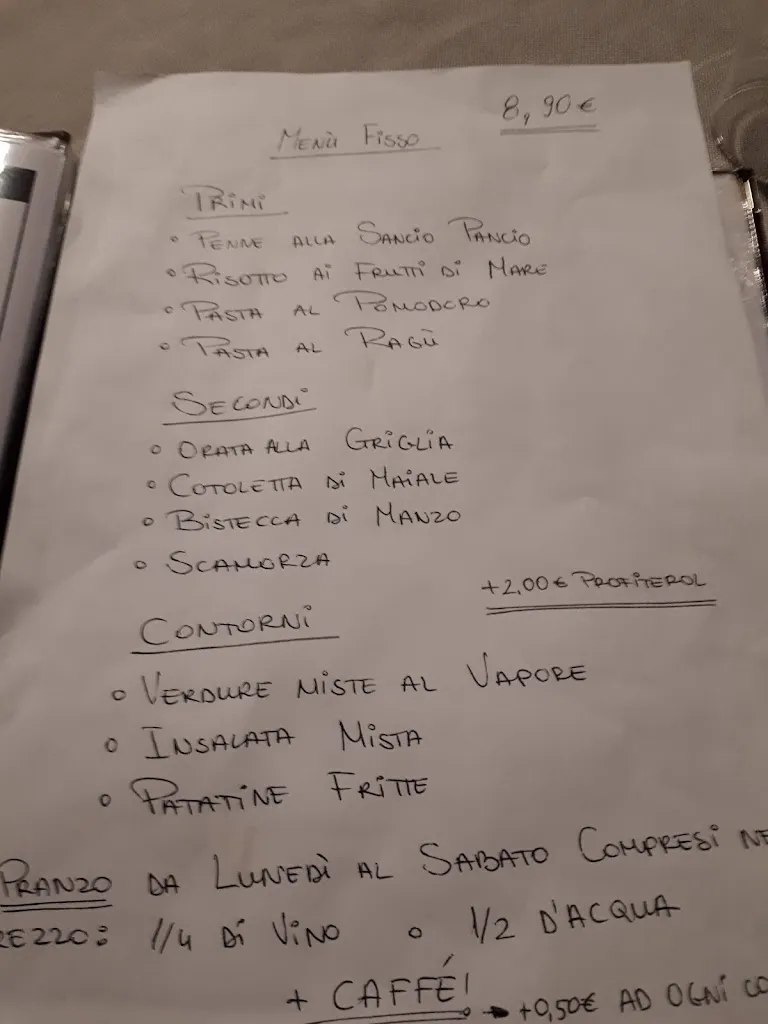 8,90€
MENÙ FISSO
PRIMI
• PENNE ALLA SANCIO PANCIO
• RISOTTO AI FRUTTI DI MARE
• PASTA AL POMODORO
• PASTA AL RAGÙ
SECONDI
• ORATA ALLA GRIGLIA
• COTOLETTA DI MAIALE
• BISTECCA DI MANZO
• SCAMORZA
+2,00€ PROFITEROL
CONTORNI
• VERDURE MISTE AL VAPORE
• INSALATA MISTA
• PATATINE FRITTE
PRANZO DA LUNEDÌ AL SABATO COMPRESI NE
REZZO: 1/4 DI VINO O 1/2 D'ACQUA
+ CAFFÉ!
+0,50€ AD OGNI CO